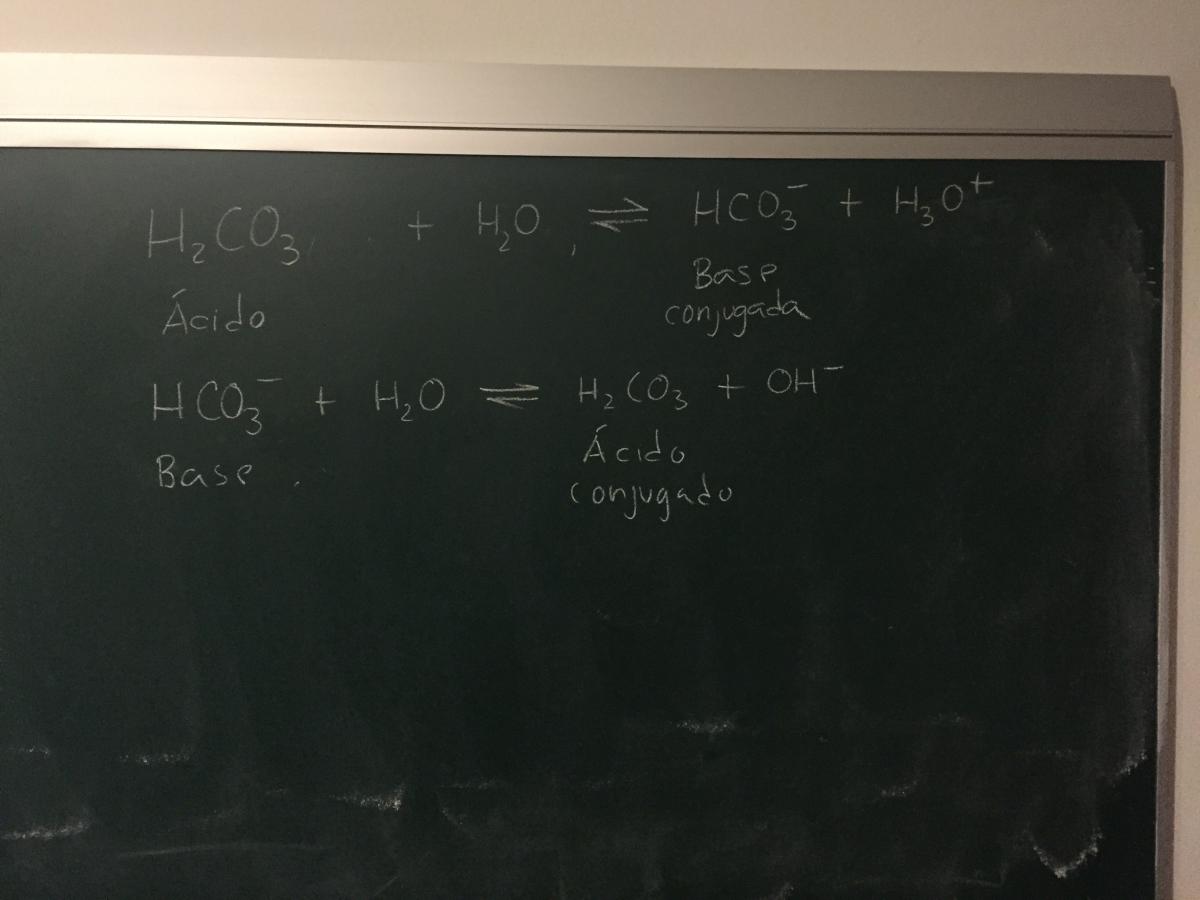 H₂CO₃ + H₂O ⇌ HCO₃⁻ + H₃O⁺
Ácido Base
conjugada
HCO₃⁻ + H₂O ⇌ H₂CO₃ + OH⁻
Base Ácido
conjugado